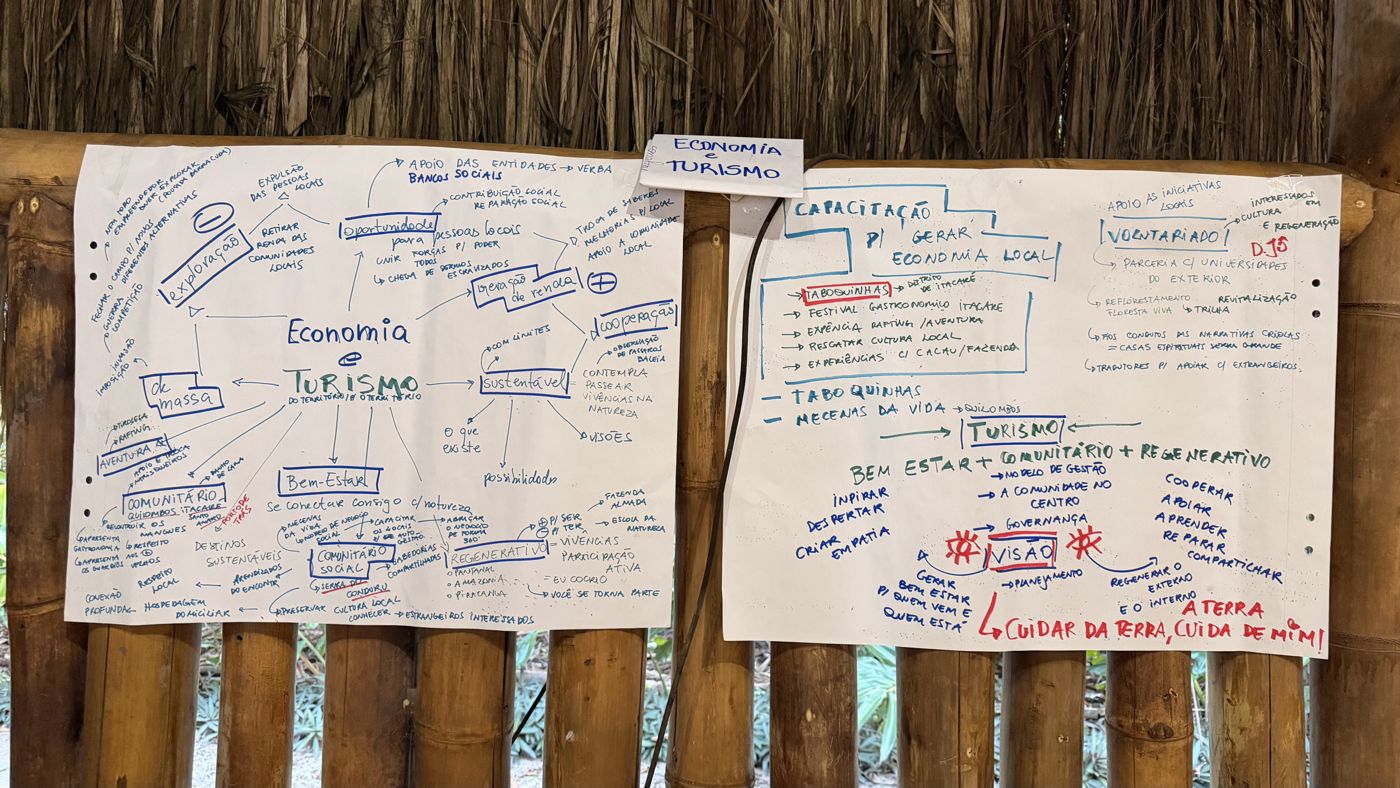 ECONOMIA
e
TURISMO
NEM TODO
EMPREENDEDOR
QUER EXPLORAR
(POUSADA BARRACUDA)
FECHAR O CAMPO P/ NOVOS
GUERRA DIFERENTES ALTERNATIVAS
COMPETIÇÃO
INVASÃO
IMPOSIÇÃO
EXPULSÃO
DAS PESSOAS
LOCAIS
exploração
RETIRAR
RENDA DAS
COMUNIDADES
LOCAIS
APOIO DAS ENTIDADES → VERBA
BANCOS SOCIAIS
CONTRIBUIÇÃO SOCIAL
REPARAÇÃO SOCIAL
oportunidade
para
pessoas locais
UNIR FORÇAS P/ PODER
TODOS
CHEGA DE SERMOS
ESCRAVIZADOS
TROCA DE SABERES
MELHORIAS P/ LOCAL
APOIO A COMUNIDADE
LOCAL
geração
de renda
+
cooperação
OBSERVAÇÃO
DE PASSAROS
BALEIA
Economia
e
TURISMO
DO TERRITÓRIO / É O TERRITÓRIO
de
massa
COM LIMITES
sustentável
= CONTEMPLA
PASSEAR
VIVÊNCIAS NA
NATUREZA
O que
existe
possibilidades
VISÕES
TIROLESA
RAFTING
AVENTURA
COMUNITÁRIO
QUILOMBOS ITACARÉ
SANTO
AMARO
BANHO
DE LAMA
PORTO DE
TRÁS
RECONSTRUIR OS
MANGUES
APRESENTA
GASTRONOMIA
RESPEITO
AOS + VELHOS
APRESENTA
OS GUARDIÕES
DESTINOS
SUSTENTÁVEIS
Bem-Estar
Se conectar consigo c/ natureza
MECENAS
DA
VIDA
MODELO DE NEGÓCIO
SOCIAL
CAPACITAR
LOCAIS
AUTO
GESTÃO
ABRAÇAR
O NEGÓCIO
DE FORMA
360
COMUNITÁRIO
social
SABEDORIAS
COMPARTILHADAS
SERRA DO
CONDURU
APRENDIZADOS
DO ENCONTRO
RESPEITO
LOCAL
CONEXÃO
PROFUNDA
HOSPEDAGEM
DOMICILIAR
PRESERVAR CULTURA LOCAL
CONHECER → ESTRANGEIROS INTERESSADOS
REGENERATIVO
PANTANAL
AMAZONIA
PIRACANGA
+ P/ SER
- P/ TER
= VIVÊNCIAS
PARTICIPAÇÃO
ATIVA
= EU COCRIO
VOCÊ SE TORNA PARTE
FAZENDA
ALMADA
ESCOLA DA
NATUREZA
CAPACITAÇÃO
P/ GERAR
ECONOMIA LOCAL
→ TABOQUINHAS → DISTRITO
DE ITACARÉ
→ FESTIVAL GASTRONOMICO ITACARE
→ EXPÊNCIA RAFTING / AVENTURA
→ RESGATAR CULTURA LOCAL
→ EXPERIÊNCIAS C/ CACAU / FAZENDA
— TABOQUINHAS
— MECENAS DA VIDA → QUILOMBOS
APOIO AS INICIATIVAS
LOCAIS
VOLNTARIADO
INTERESSADOS
EM
CULTURA
E REGENERAÇÃO
PARCERIA C/ UNIVERSIDADES
DO EXTERIOR
REFLORESTAMENTO
FLORESTA VIVA
REVITALIZAÇÃO
TRILHA
= CASAS ESPIRITUAIS SERRA GRANDE
TRADUTORES P/ APOIAR C/ EXTRANGEIROS.
→ TURISMO ←
BEM ESTAR + COMUNITÁRIO + REGENERATIVO
INPIRAR
DESPERTAR
CRIAR
EMPATIA
→ MODELO DE GESTÃO
→ A COMUNIDADE NO
CENTRO
→ GOVERNANÇA
VISÃO
→ PLANEJAMENTO
COOPERAR
APOIAR
APRENDER
REPARAR
COMPARTICHAR
GERAR
BEM ESTAR
P/ QUEM VEM E
QUEM ESTÁ
REGENERAR O
EXTERNO
E O INTERNO
A TERRA
CUIDAR DA TERRA, CUIDA DE MIM!